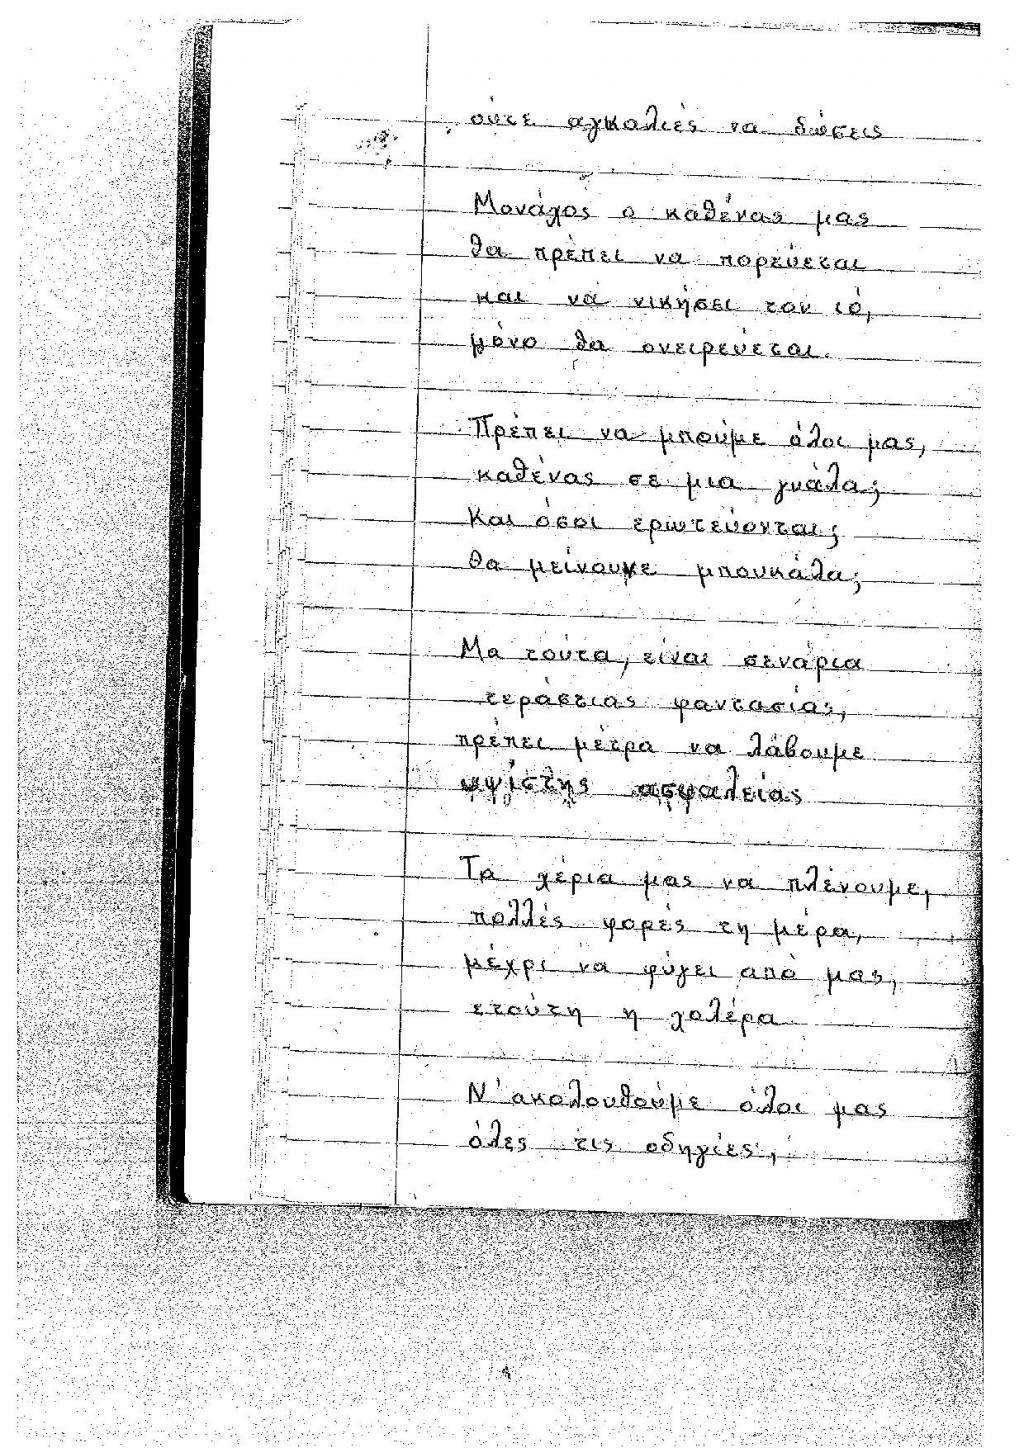 ούτε αγκαλιές να δώσεις
Μονάχος ο καθένας μας
θα πρέπει να πορεύεται
και να νικήσει τον ιό,
μόνο θα ονειρεύεται.
Πρέπει να μπούμε όλοι μας,
καθένας σε μια γυάλα;
Και όσοι ερωτεύονται;
θα μείνουνε μπουκάλα;
Μα τούτα, είναι σενάρια
τεράστιας φαντασίας,
πρέπει μέτρα να λάβουμε
υψίστης ασφαλείας
Τα χέρια μας να πλένουμε,
πολλές φορές τη μέρα,
μέχρι να φύγει από μας,
ετούτη η χολέρα
Ν' ακολουθούμε όλοι μας
όλες τις οδηγίες,